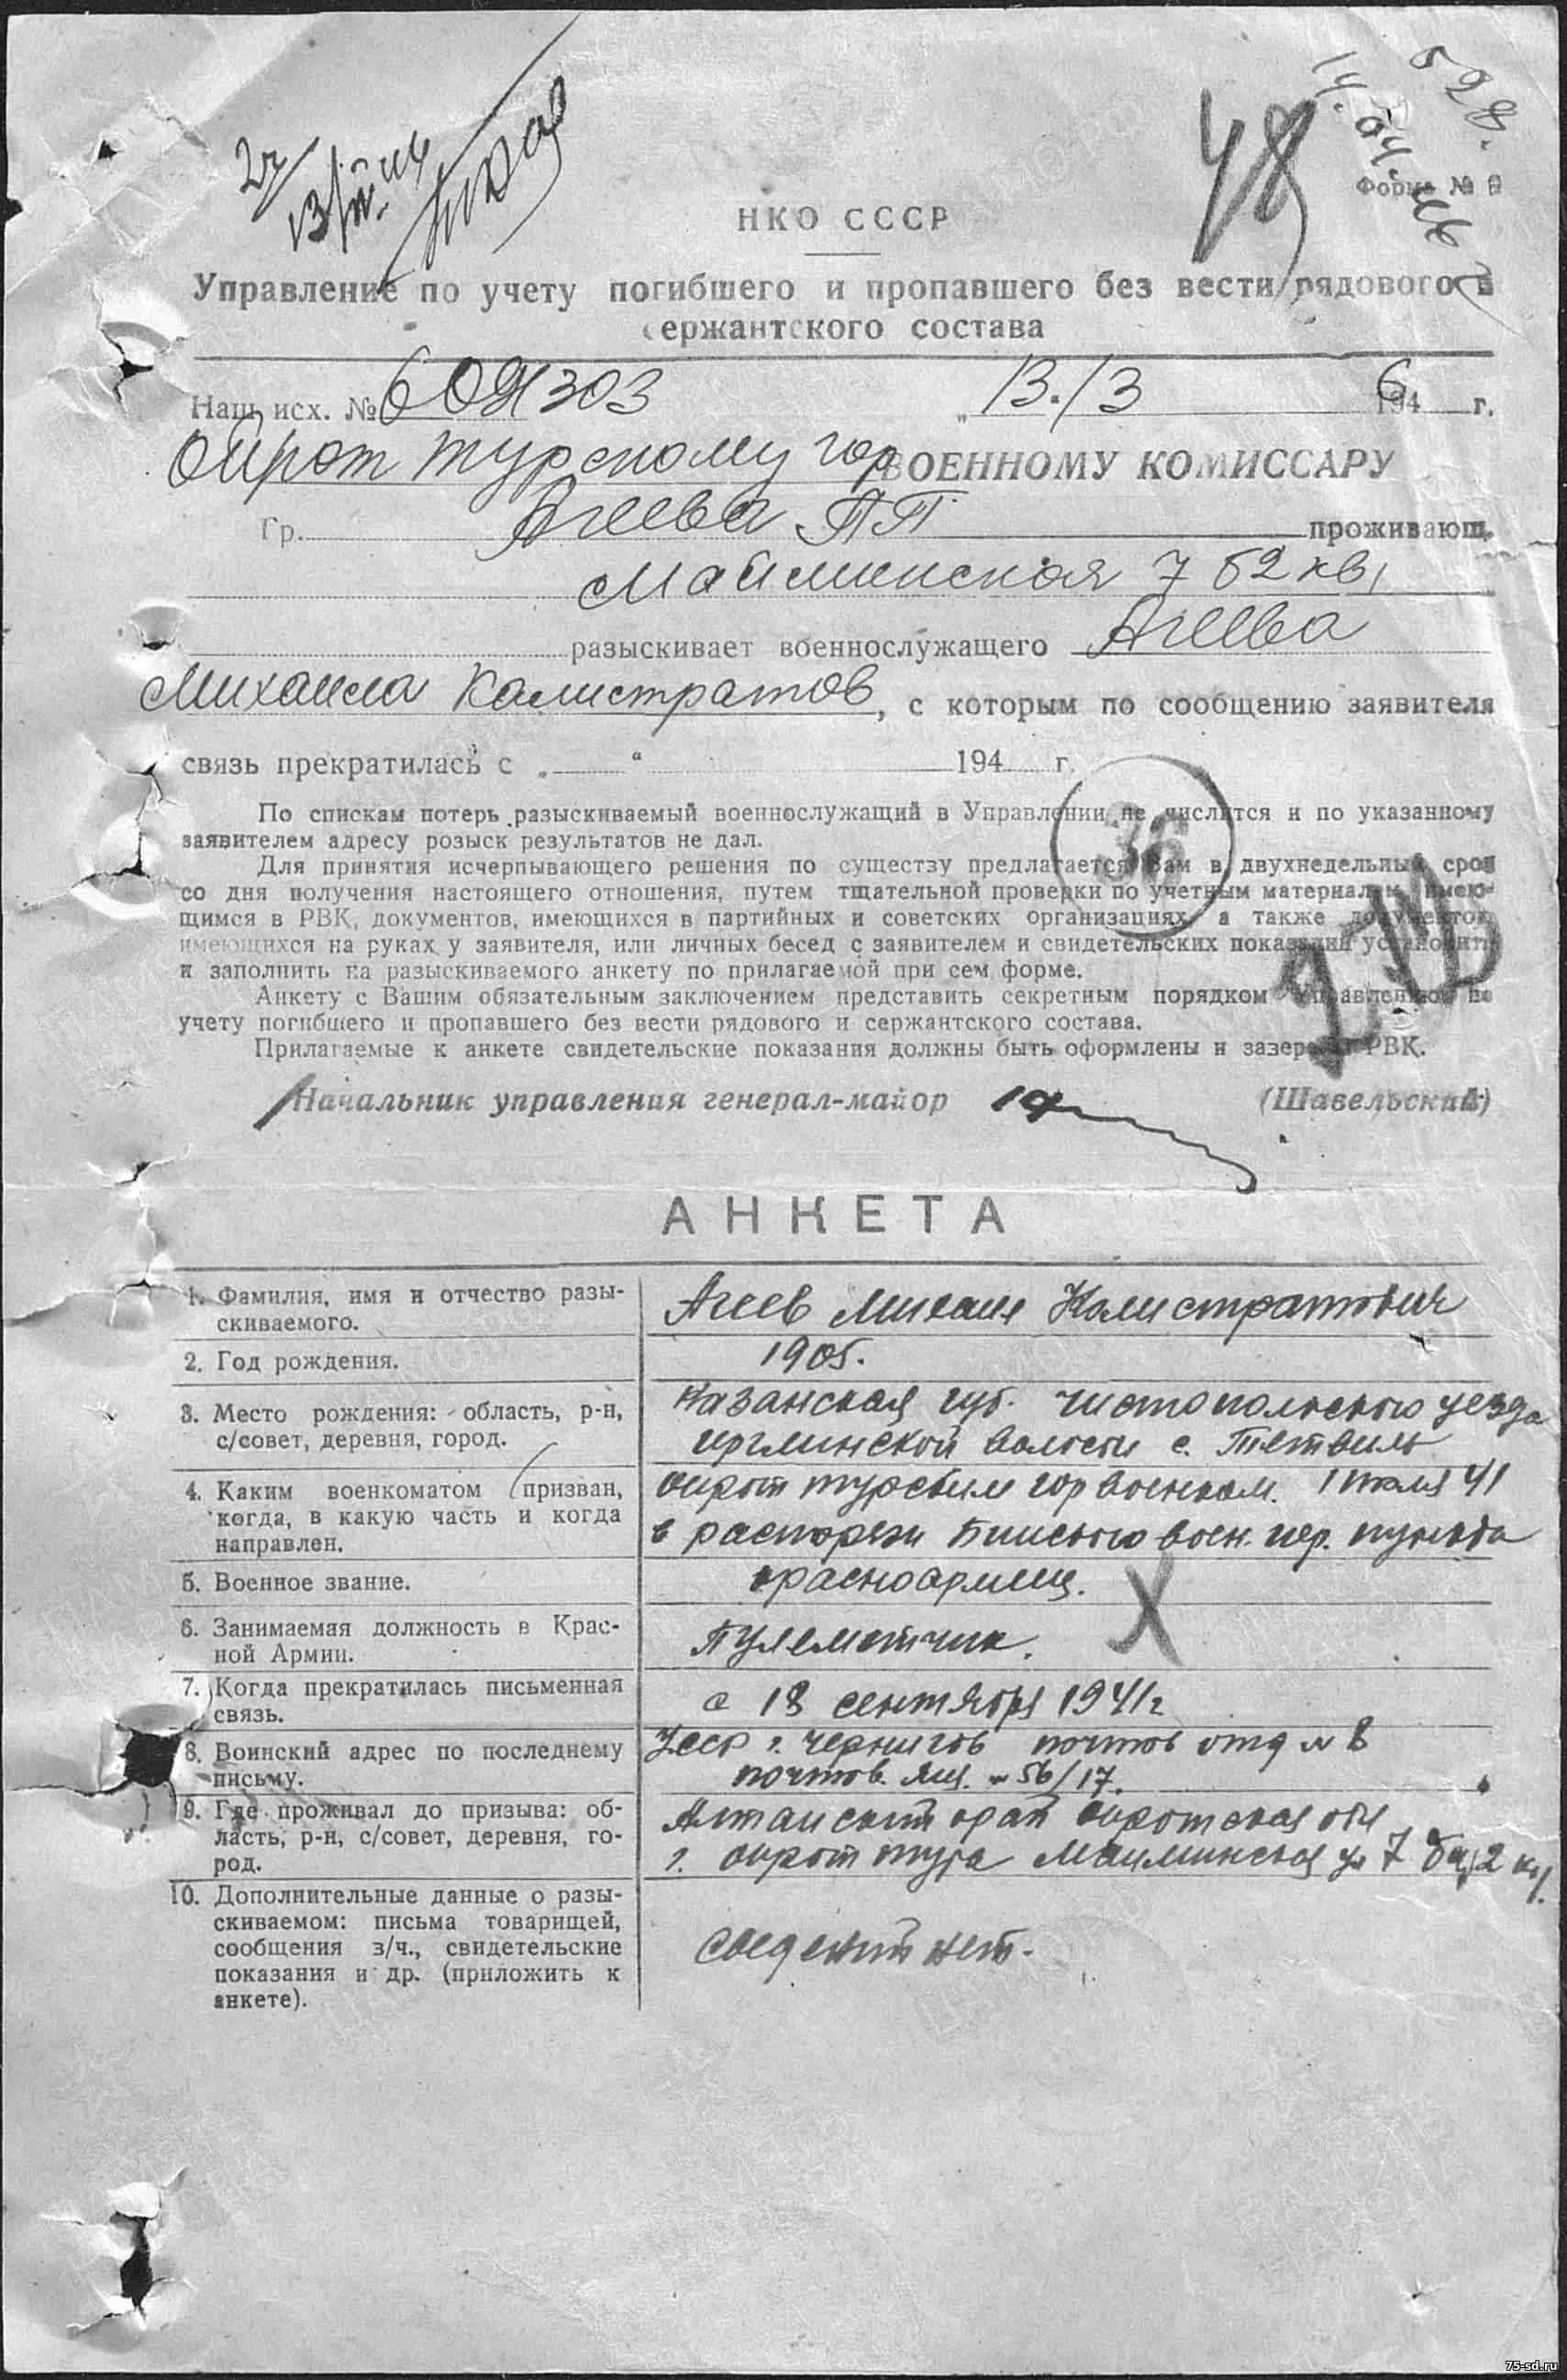 48
Форма №
НКО СССР
Управление по учету погибшего и пропавшего без вести рядового и
сержантского состава
Наш исх. № 303 13./3 1946 г.
Ойрот Турскому гор ВОЕННОМУ КОМИССАРУ
Гр. Агеева П П проживающ.
Майминская 7 б 2 кв.
разыскивает военнослужащего Агеева
Михаила Калистратов, с которым по сообщению заявителя
связь прекратилась с „ “ 194 г.
По спискам потерь разыскиваемый военнослужащий в Управлении не числится и по указанному
заявителем адресу розыск результатов не дал.
Для принятия исчерпывающего решения по существу предлагается Вам в двухнедельный срок
со дня получения настоящего отношения, путем тщательной проверки по учетным материалам, имею-
щимся в РВК, документов, имеющихся в партийных и советских организациях, а также документов,
имеющихся на руках у заявителя, или личных бесед с заявителем и свидетельских показаний установить
и заполнить на разыскиваемого анкету по прилагаемой при сем форме.
Анкету с Вашим обязательным заключением представить секретным порядком Управлению по
учету погибшего и пропавшего без вести рядового и сержантского состава.
Прилагаемые к анкете свидетельские показания должны быть оформлены и заверены РВК.
36
Начальник управления генерал-майор (Шавельский)
АНКЕТА
1. Фамилия, имя и отчество разы-
скиваемого.
Агеев Михаил Калистратович
2. Год рождения.
1905.
3. Место рождения: область, р-н,
с/совет, деревня, город.
Казанская губ. Чистопольского уезда
волости с.
4. Каким военкоматом призван,
когда, в какую часть и когда
направлен.
Ойрот турским горвоенком. 41
в распоряж Бийского воен. пер. пункта
5. Военное звание.
красноармеец.
6. Занимаемая должность в Крас-
ной Армии.
Пулеметчик.
7. Когда прекратилась письменная
связь.
с 18 сентября 1941г
8. Воинский адрес по последнему
письму.
УССР г. Чернигов почтов отд № 8
почтов. ящ. № 56/17.
9. Где проживал до призыва: об-
ласть, р-н, с/совет, деревня, го-
род.
Алтайский край Ойротская обл
г. Ойрот тура Майминская ул 7 2 кв.
10. Дополнительные данные о разы-
скиваемом: письма товарищей,
сообщения з/ч., свидетельские
показания и др. (приложить к
анкете).
сведений нет.
75-sd.ru